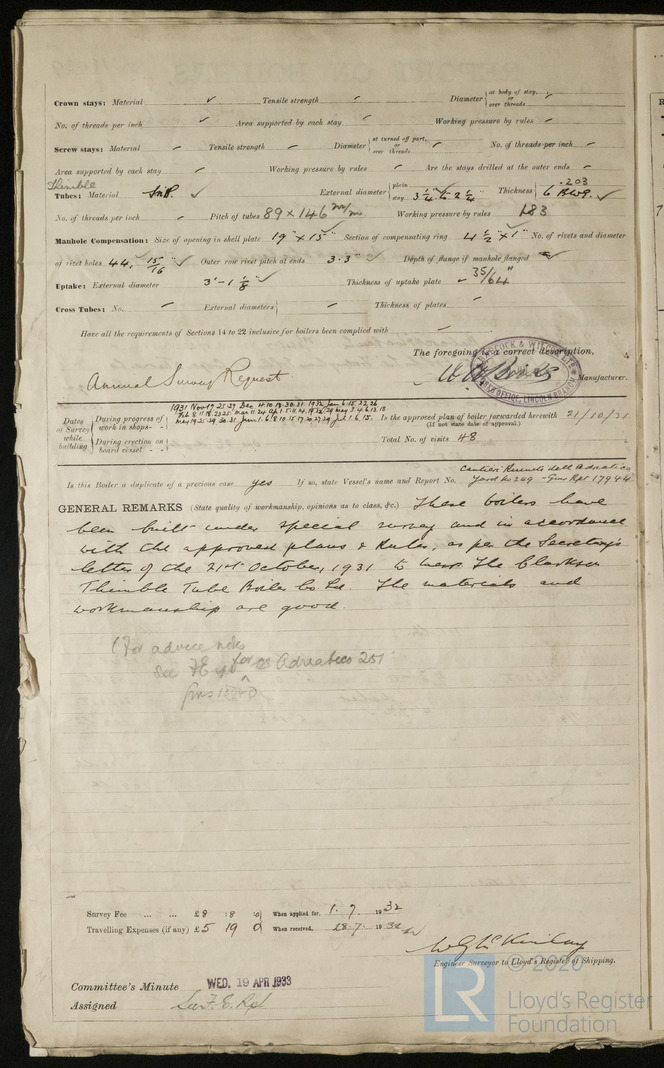 Crown stays: Material ✓ Tensile strength ✓ Diameter {at body of stay, or over threads ✓
No. of threads per inch ✓ Area supported by each stay ✓ Working pressure by rules ✓
Screw stays: Material ✓ Tensile strength ✓ Diameter {at turned off part, or over threads ✓ No. of threads per inch ✓
Area supported by each stay ✓ Working pressure by rules ✓ Are the stays drilled at the outer ends ✓
Thimble
Tubes: Material ✓ External diameter {plain stay 3 1/4" to 2 1/4" Thickness {.203 6 B.W.G. ✓
No. of threads per inch ✓ Pitch of tubes 89 × 146 m/m. Working pressure by rules 183
Manhole Compensation: Size of opening in shell plate 19" × 15" ✓ Section of compensating ring 4 1/2" × 1" ✓ No. of rivets and diameter
of rivet holes 44, 15/16" ✓ Outer row rivet pitch at ends 3·3" ✓ Depth of flange if manhole flanged ✓
Uptake: External diameter 3'-1 1/8" ✓ Thickness of uptake plate 35/64"
Cross Tubes: No. ✓ External diameters{ ✓ Thickness of plates ✓
Have all the requirements of Sections 14 to 22 inclusive for boilers been complied with
The foregoing is a correct description,
BABCOCK & WILCOX LTD
Manufacturer.
Annual Survey Request
Dates of Survey while building {During progress of work in shops - - 1931 Nov 17 25 27 Dec
Is the approved plan of boiler forwarded herewith 21/10/31
(If not state date of approval.)
During erection on board vessel - - -
Total No. of visits 48
Is this Boiler a duplicate of a previous case yes If so, state Vessel's name and Report No. Cantieri Riuniti dell Adriatico
Yard No 269 - Gns Rpt 17944
GENERAL REMARKS (State quality of workmanship, opinions as to class, &c.) These boilers have
been built under special survey and in accordance
with the approved plans & Rules, as per the Secretary's
letter of the 21st October, 1931 to Messrs The Clarkson
Thimble Tube Boiler Co Ltd. The materials and
workmanship are good.
(For advice note
See FE for Adriatico 251
Survey Fee ... ... £8 : 8 : 0 When applied for, 1.7. 1932
Travelling Expenses (if any) £5 19 0 When received, 28.7. 1932
W G McKinlay
Engineer Surveyor to Lloyd's Register of Shipping.
Committee's Minute WED. 19 APR 1933
Assigned See F.E. Rpt
© 2020
LR Lloyd's Register
Foundation